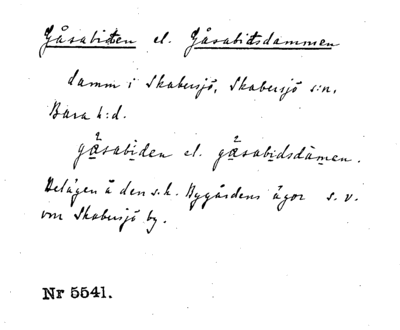 Gåsabitten el. Gåsabitsdammen
damm i Skabersjö, Skabersjö s:n,
Bara h:d.
gåsabiden el. gåsabidsdamen.
Belägen å den s.k. Bygårdens ägor s.v.
om Skabersjö by.
Nr 5541.